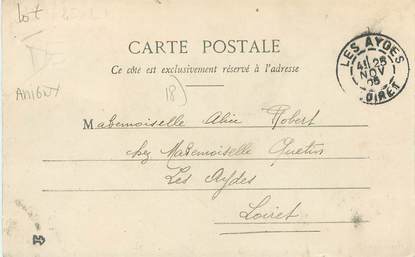 Lot
CARTE POSTALE
Ce côté est exclusivement réservé à l'adresse
18)
LES AYDES
25
NOV
LOIRET
Mademoiselle Alice Robert
chez Mademoiselle Quetin
Les Aydes
Loiret